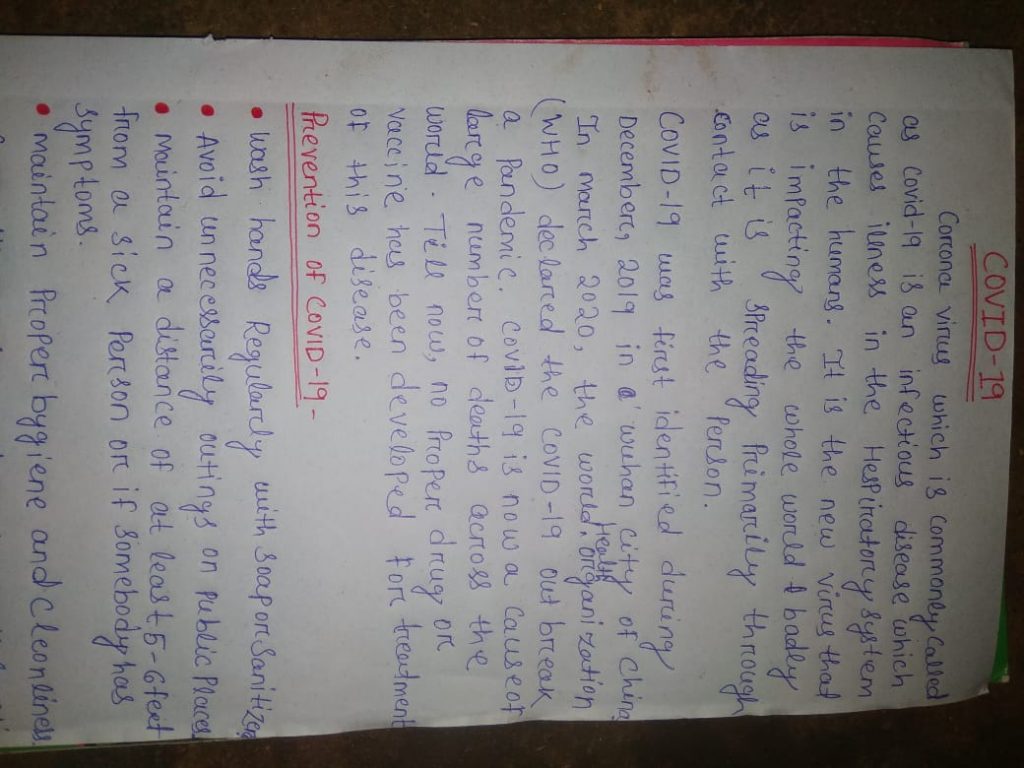 COVID-19
Corona virus which is commonly called
as covid-19 is an infectious disease which
causes illness in the Respiratory system
in the humans. It is the new virus that
is impacting the whole world & badly
as it is spreading Primarily through
contact with the Person.
COVID-19 was first identified during
December, 2019 in a wuhan city of china
In march 2020, the world Health organization
(WHO) declared the COVID-19 outbreak
a Pandemic. COVID-19 is now a cause of
large number of deaths across the
world. Till now, no Proper drug or
vaccine has been developed for treatment
of this disease.
Prevention of COVID-19-
• wash hands Regularly with soap or sanitizer
• Avoid unnecessarily outings on public Places
• Maintain a distance of at least 5-6 feet
from a sick Person or if somebody has
symptoms.
• maintain Proper hygiene and cleanliness.